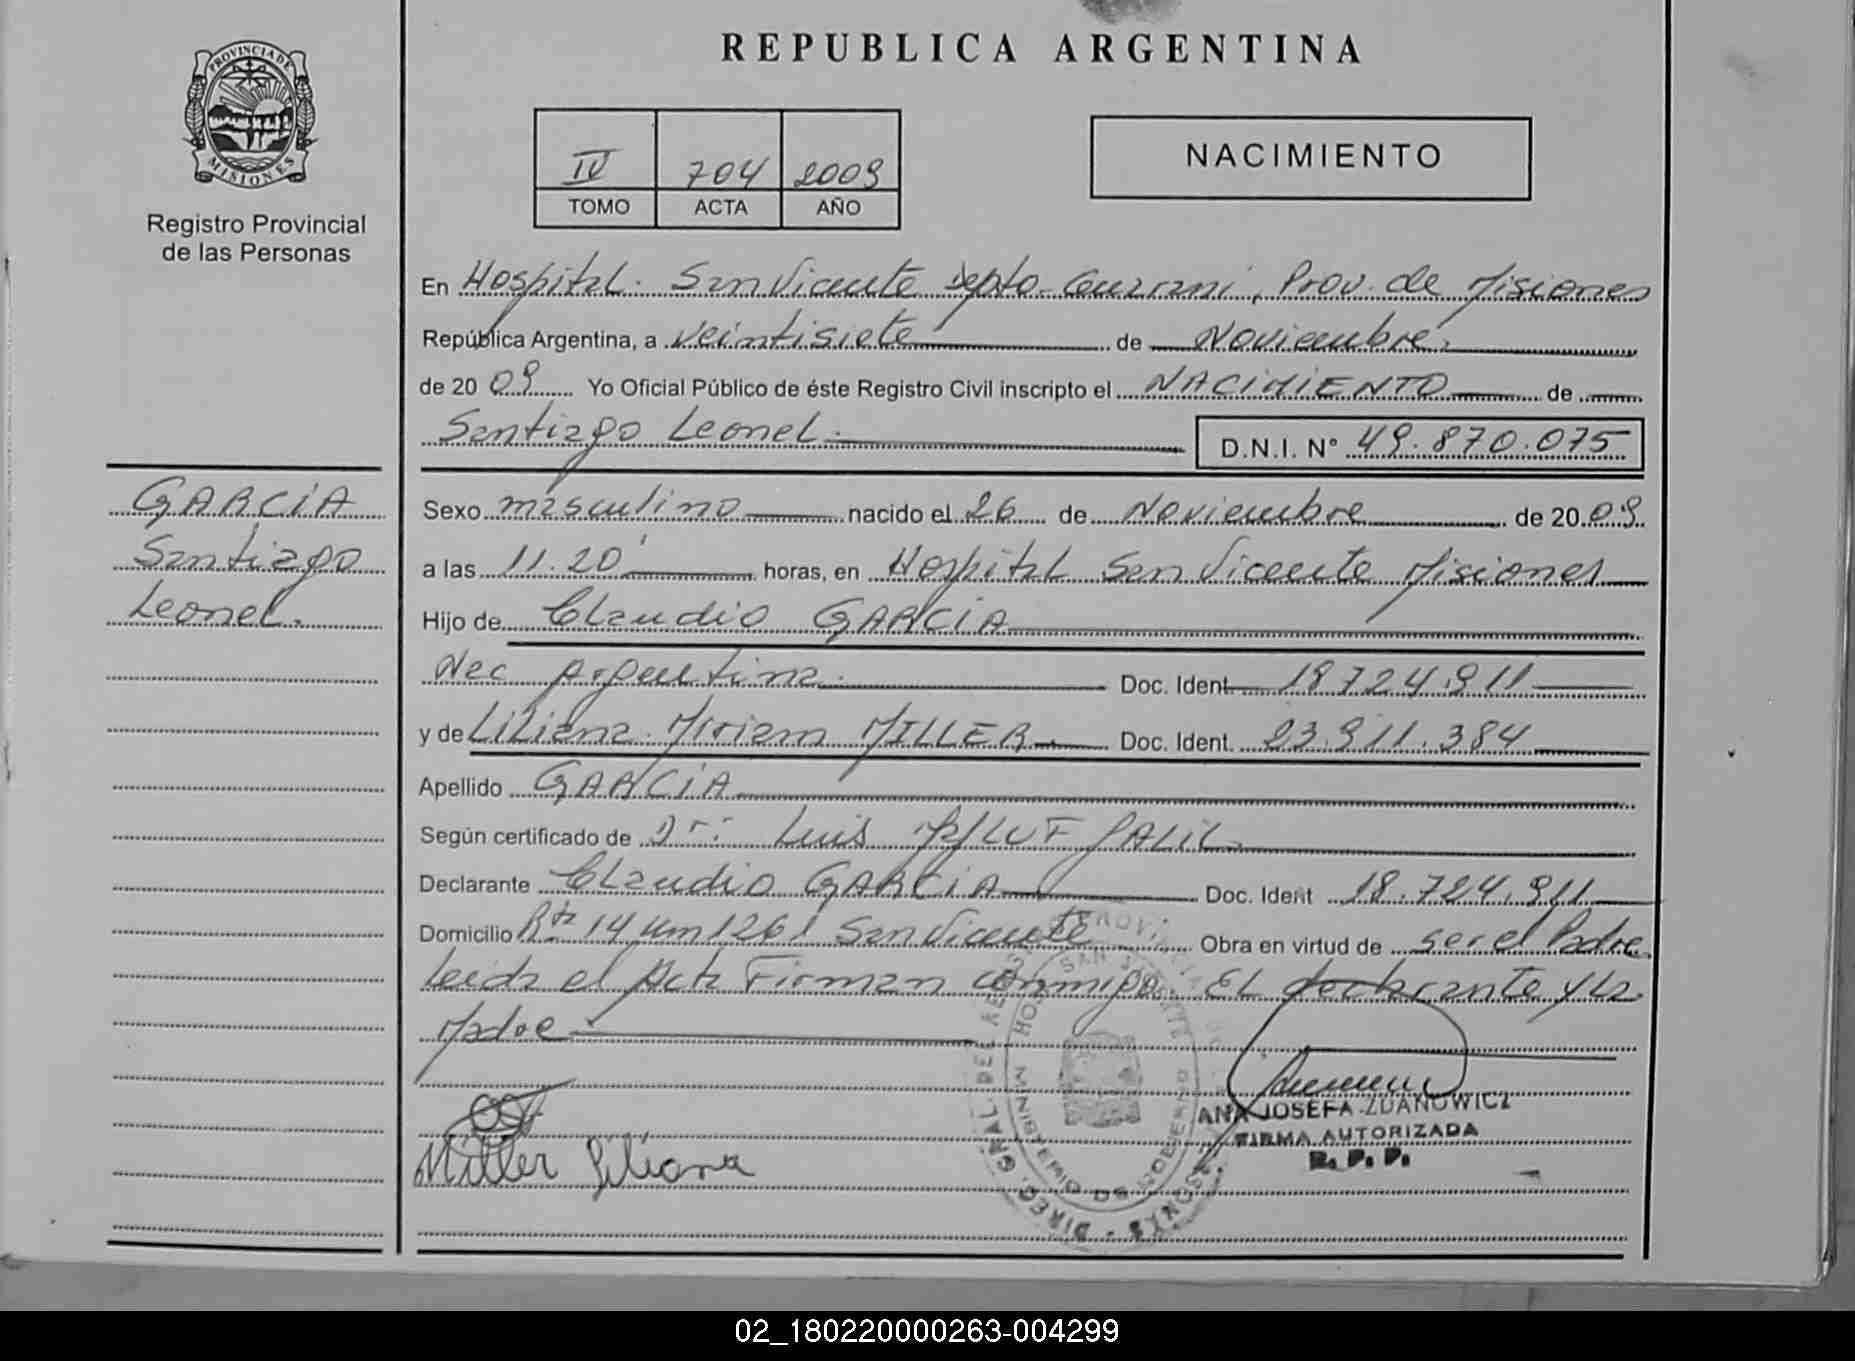 REPUBLICA ARGENTINA
PROVINCIA DE MISIONES
Registro Provincial
de las Personas
IV 704 2009
TOMO ACTA AÑO
NACIMIENTO
En Hospital. San Vicente Depto. Guarani, Prov. de Misiones
República Argentina, a veintisiete de Noviembre.
de 2009 Yo Oficial Público de éste Registro Civil inscripto el NACIMIENTO de
Santiago Leonel.
D.N.I. Nº 49.870.075
GARCIA
Santiago
Leonel.
Sexo masculino nacido el 26 de Noviembre de 2009
a las 11.20' horas, en Hospital San Vicente Misiones
Hijo de Claudio GARCIA
Nac Argentina. Doc. Ident 18724.911
y de Liliana Miriam MILLER Doc. Ident. 23.911.384
Apellido GARCIA
Según certificado de Dr: Luis JALIL
Declarante Claudio GARCIA Doc. Ident 18.724.911
Domicilio Rta 14 Km 1261 San Vicente Obra en virtud de ser el Padre
Leida el Acta Firman conmigo. EL declarante y la
Madre
ANA JOSEFA ZDANOWICZ
FIRMA AUTORIZADA
R. P. P.
Miller Liliana
02_180220000263-004299